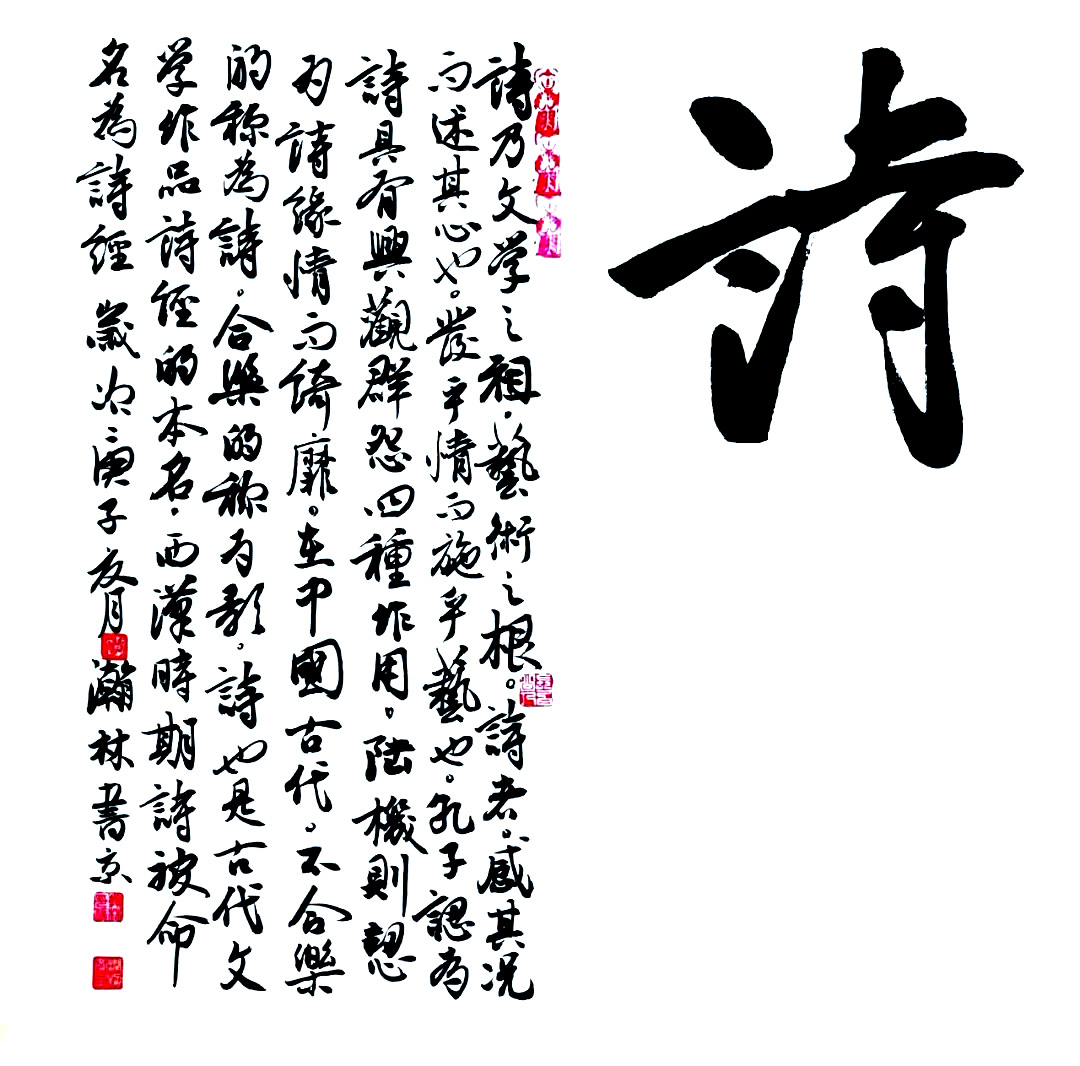 詩
詩乃文学之祖，藝術之根。詩者。感其况
而述其心也。發乎情而施乎藝也。孔子認為
詩具有興觀群怨四種作用。陆機則認
为詩緣情而綺靡。在中國古代。不合樂
的称為詩。合樂的称为歌。詩也是古代文
学作品詩經的本名，西漢時期詩被命
名為詩經 歲次庚子夏月瀚林書京